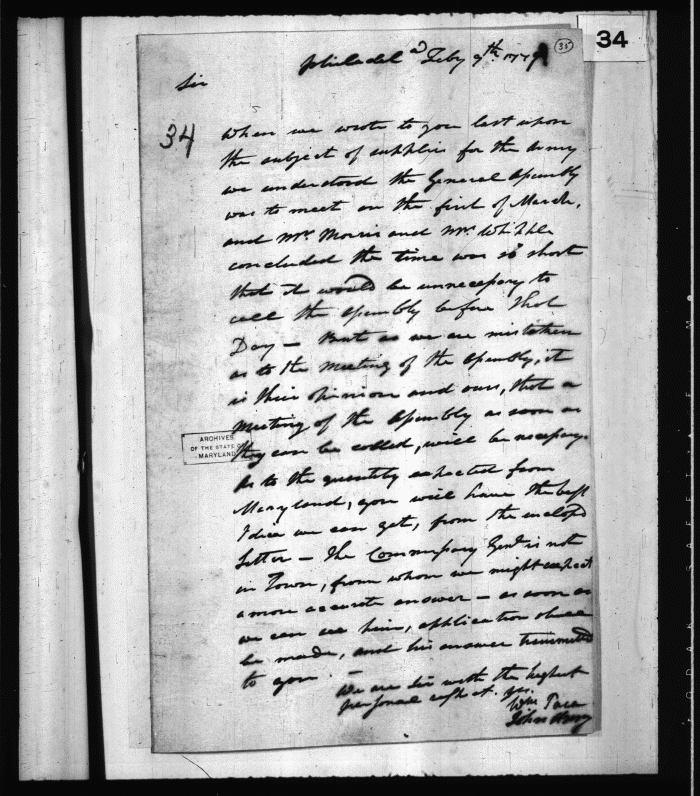 34
35
Philadel.a Feby 9th. 1779
Sir
34
When we wrote to you last upon
the subject of supplies for the Army
we understood the General Assembly
was to meet on the first of March,
and Mr. Morris and Mr. Whipple
concluded the time was so short
that it would be unnecessary to
call the Assembly before that
Day — But as we are mistaken
as to the Meeting of the Assembly, it
is their opinion and ours, that a
Meeting of the Assembly as soon as
they can be called, will be necessary.
As to the quantity expected from
Maryland, you will have the best
Idea we can get, from the enclosed
Letter — The Commissary Genl. is not
in Town, from whom we might expect
a more accurate answer — as soon as
we can see him, application shall
be made, and his answer transmitted
to you. —
We are Sir with the highest
personal respect. Yrs.
Wm. Paca
John Henry
ARCHIVES
OF THE STATE OF
MARYLAND